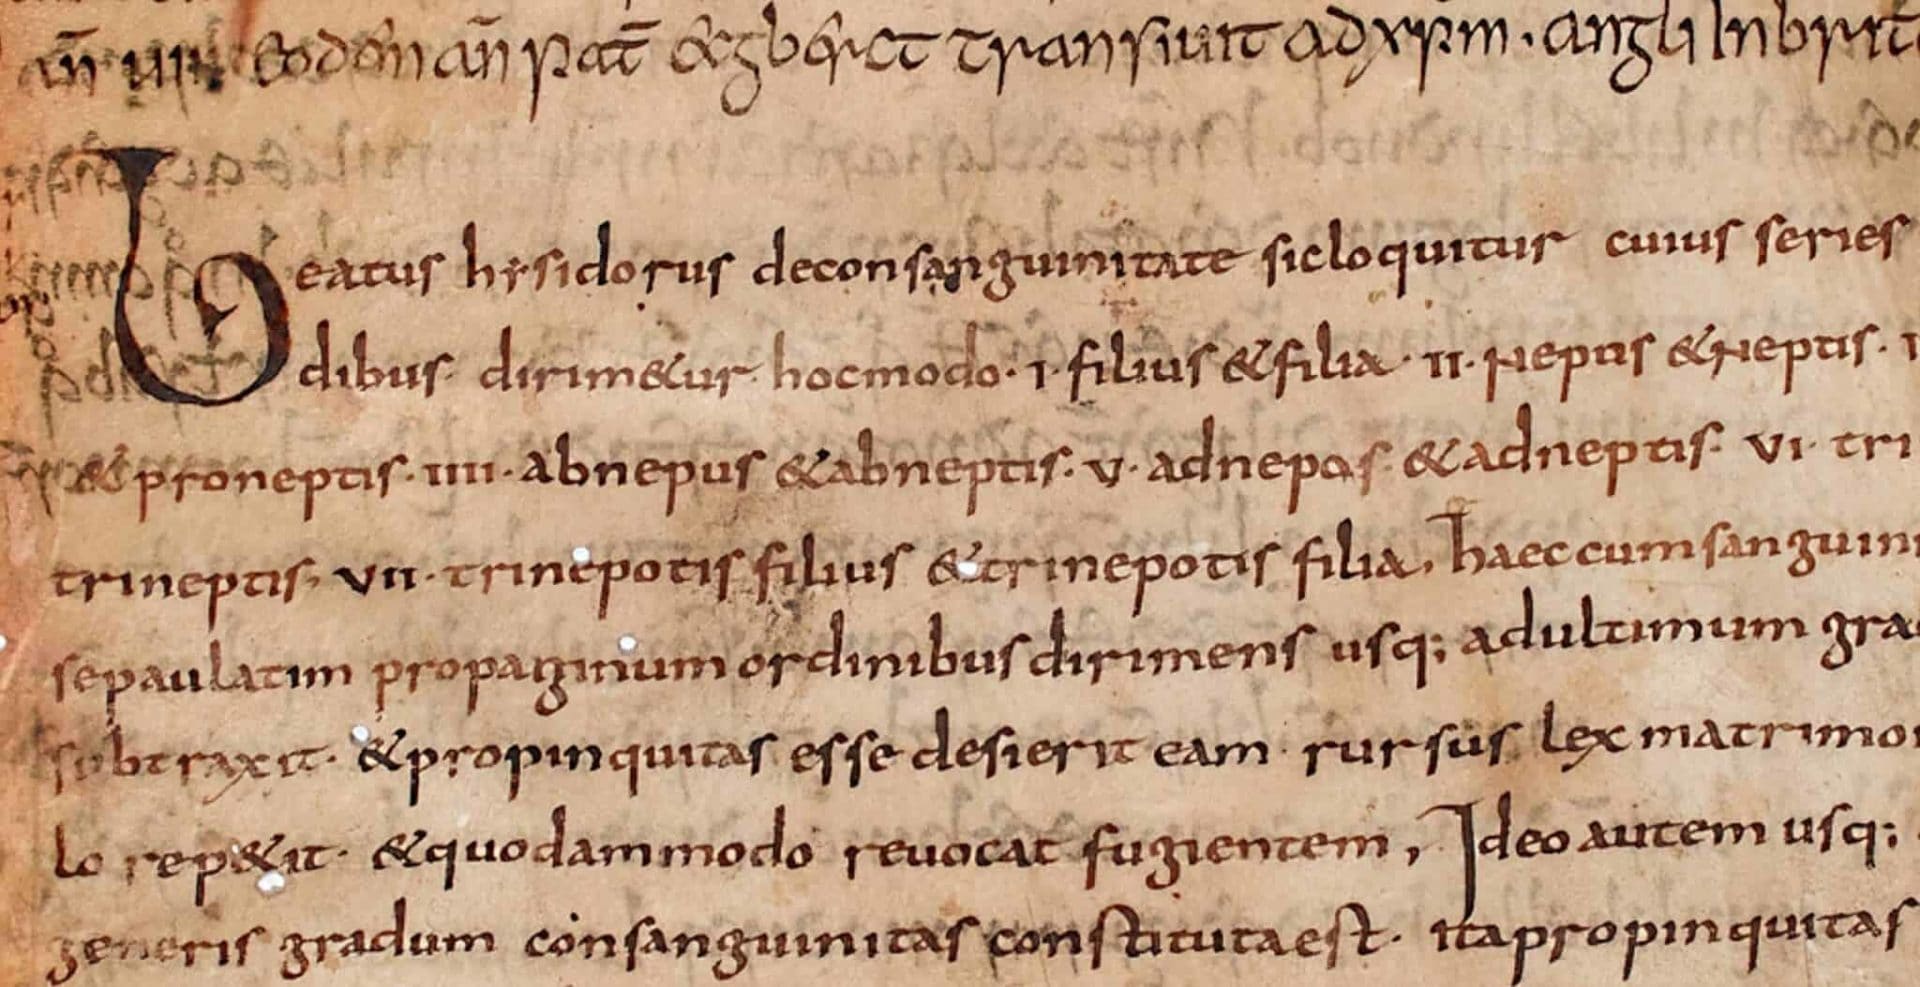 añ uii eodem añ pat̄ ecgberct transiuit ad xp̄m · angli In brit
Beatus hysidorus deconsanguinitate sicloquitur cuius series
dibus · dirim&ur · hocmodo · i · filius &filia · ii · Neptis &Neptis ·
&proneptis · iiii · abnepus &abneptis · v · adnepos · &adneptis · vi · tri
trineptis, vii · trinepotis filius &trinepotis filia, haeccumsanguini
sepaulatim propaginum ordinibus dirimens usq; adultimum gra
subtraxit · &propinquitas esse desierit eam · rursus lex matrimo
lo rep&it · &quodammodo reuocat fugientem, Ideo autem usq;
generis gradum consanguinitas constituta est · itapropinquitas